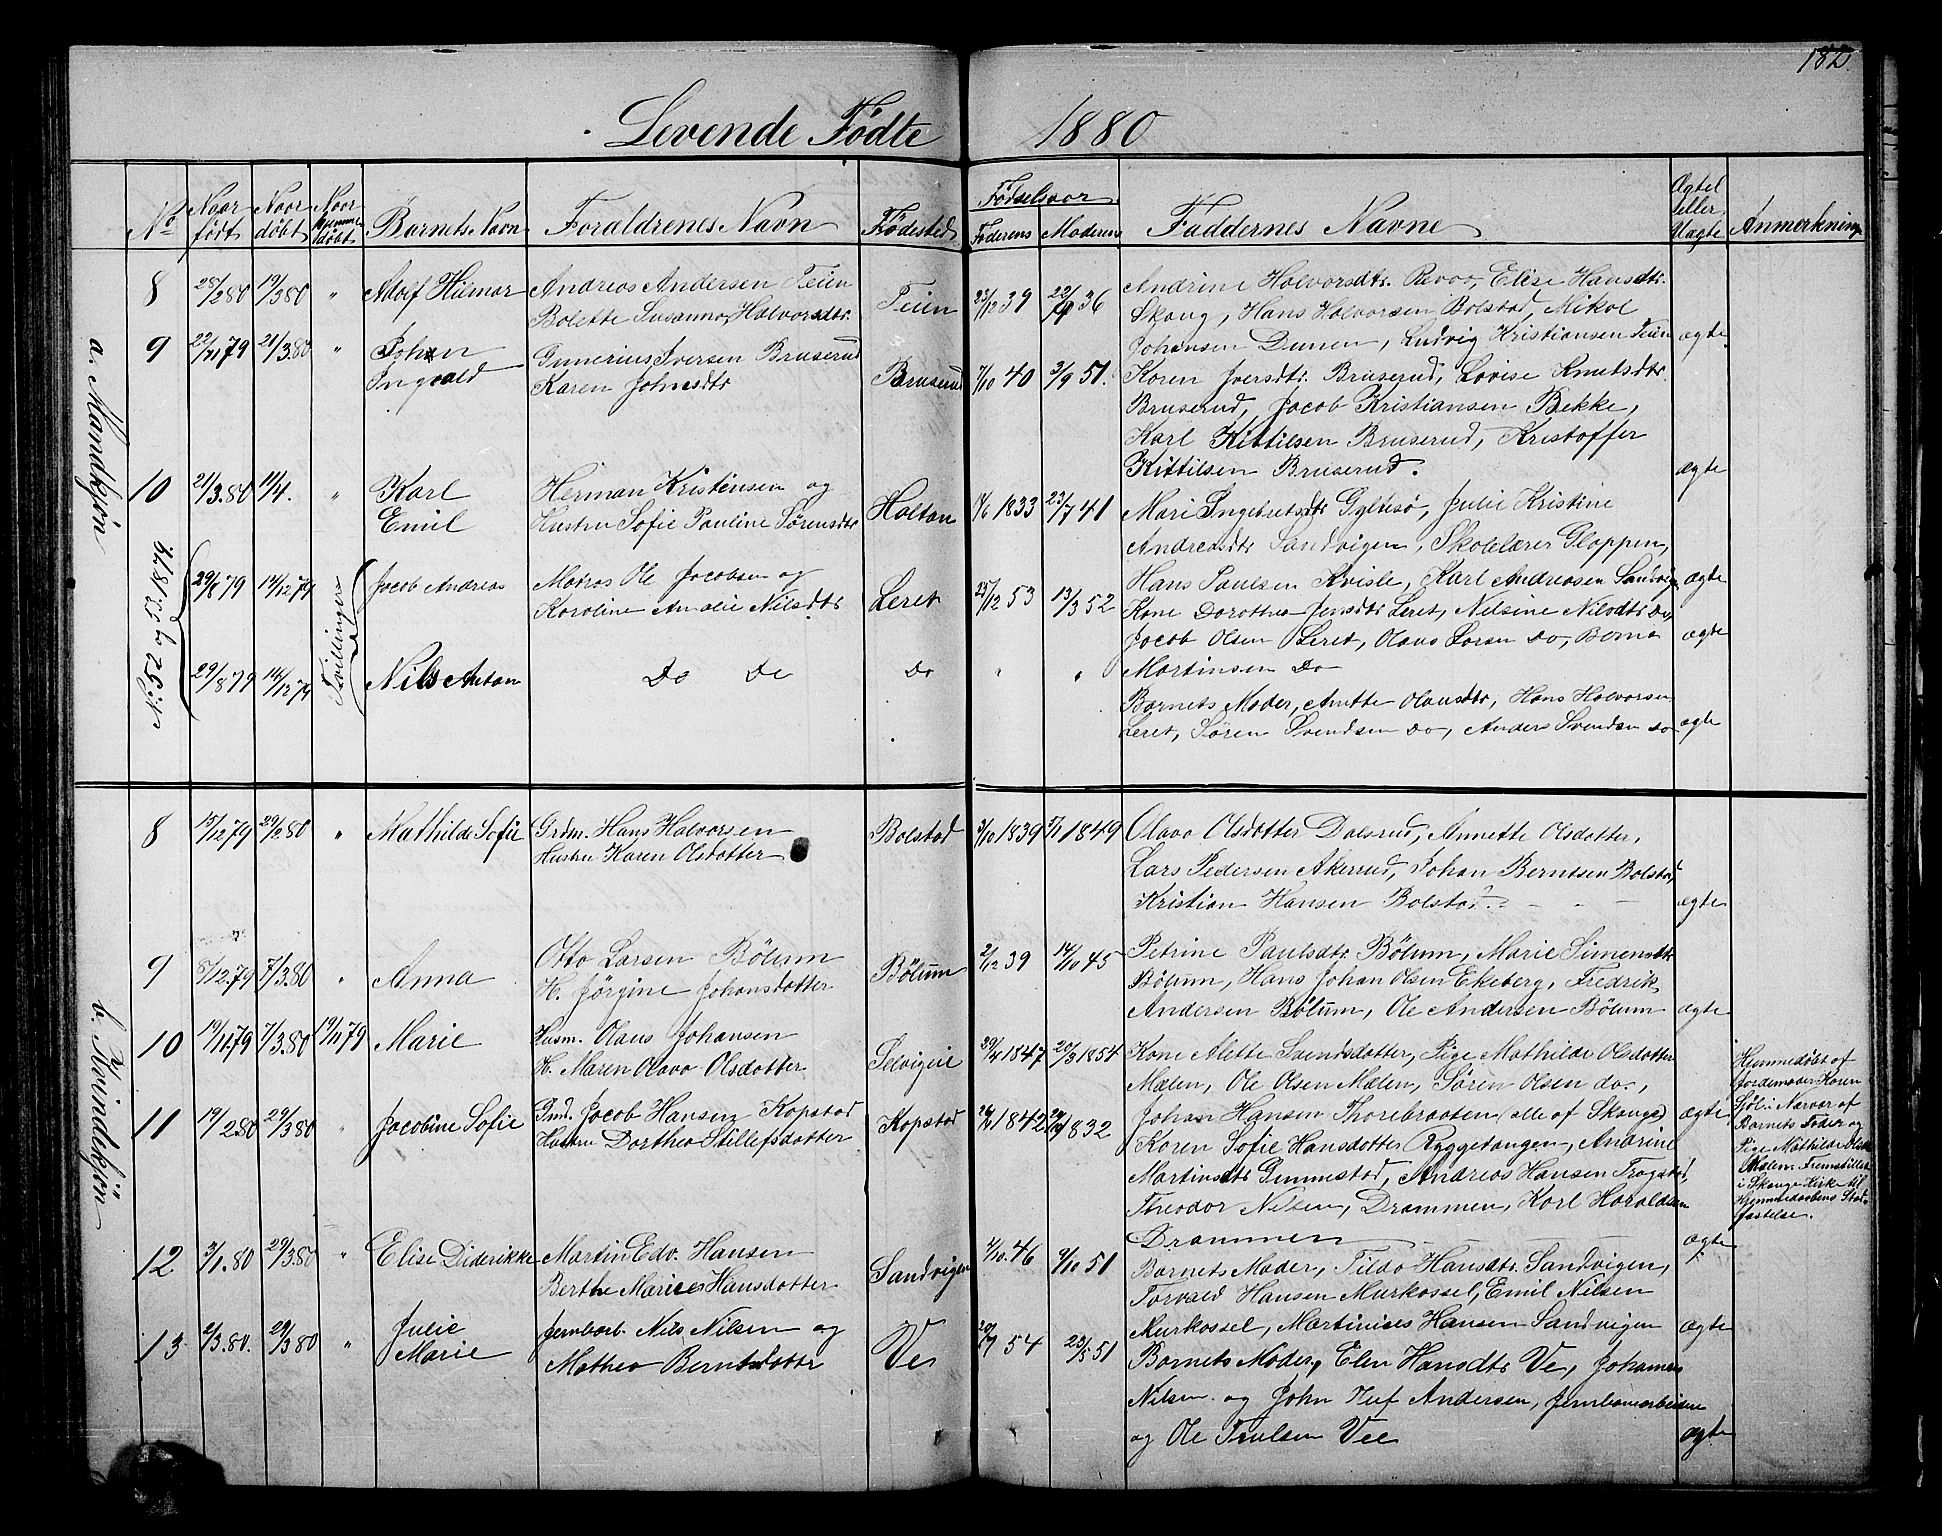 182
Levende Fødte 1880
No Naar født Naar døbt Naar hjemme døbt Barnets Navn Forældrenes Navn Fødested Fødselsaar Faderens Moderens Faddernes Navne Ægte eller Uægte Anmerkning
a. Mandkjøn
8 28/2 80 19/3 80 " Adolf Hilmar Andreas Andersen Teien
Bolette Susanna Halvorsdtr. Teien 23/12 39 36
Andrine Halvorsdtr. Revaa, Elise Hansdtr.
Skaug, Hans Halvorsen Bolstad, Mikal
Johansen Dunen, Ludvig Kristiansen Teien ægte.
9 22/11 79 21/3.80 " Johan
Ingvald Gunerius Iversen Bruserud
Karen Johnsdtr Bruserud 7/10 40 3/9 51.
Karen Iversdtr. Bruserud, Lovise Knutsdtr.
Bruserud, Jacob Kristiansen Bekke,
Karl Kittilsen Bruserud, Kristoffer
Kittilsen Bruserud. ægte
10 21/3.80 11/4. " Karl
Emil Herman Kristensen og
Hustru Sofie Pauline Sørensdtr Holtan 1/6 1833 23/7 41
Mari Ingebretsdtr Gyltesø, Julie Kristine
Andreasdtr Sandvigen, Skolelærer Gloppen,
Hans Paulsen Kvisle, Karl Andreasen Sandvign ægte
No 25 & 25 1876
Tvillinger
29/8 79 14/12 79 Jacob Andreas Matros Ole Jacobsen og
Karoline Amalie Nilsdtr Leret 25/12 53 13/3 52
Kone Dorothea Jensdtr Leret, Nilsine Nilsdtr Do,
Jacob Olsen Leret, Olaus Loren Do, Berna
Martinsen Do ægte
29/8 79 14/12 79 Nils Anton Do Do Do " "
Barnets Moder, Anette Olausdtr, Hans Halvorsen
Leret, Søren Svendsen Do, Anders Svendsen Do ægte
b. Kvindekjøn
8 13/12 79 29/2 80 " Mathilde Sofie Grdm. Hans Halvorsen
Hustru Karen Olsdotter Bolstad 3/10 1839 1849
Olava Olsdotter Dalsrud, Annette Olsdotter,
Lars Pedersen Akerrud, Johan Berntsen Bolstad,
Kristian Hansen Bolstad. ægte
9 8/12.79 7/3.80 " Anna Otto Larsen Bølum
H. Jørgine Johansdotter Bølum 2/12 39 14/10 45
Petrine Paulsdtr Bølum, Marie Simensdtr
Bølum, Hans Johan Olsen Ekeberg, Fredrik
Andersen Bølum, Ole Andersen Bølum ægte
10 19/11.79 7/3.80 19/11 79 Marie Husm. Olaus Johansen
H. Maren Olava Olsdotter Selvigeie 29/4 1847 20/3 1854
Kone Alette Svendsdotter, Pige Mathilde Olsdotter
Mælen, Ole Olsen Mælen, Søren Olsen do,
Johan Hansen Thorebraaten (alle af Skauge) ægte
Hjemmedøbt af
Jordemoder Karen
Sjøli i Nærvær af
Barnets Fader og
Pige Mathilde Olsdtr
Mælen. Fremstillet
i Skauge Kirke til
Hjemmedaabens Stad-
fæstelse.
11 19/2 80 29/3 80 " Jacobine Sofie Grd. Jacob Hansen Kopstad
Hustru Dorthea Stillefsdotter Kopstad 1842 1832
Karen Sofie Hansdotter Ryggetangen, Andrine
Martinsdtr Gunnestad, Andreas Hansen Tragstad,
Theodor Nilsen, Drammen, Karl Haraldsen
Drammen ægte
12 3/1.80 29/3.80 " Elise Diderikke Martin Edv. Hansen
Berthe Marie Hansdotter Sandvigen 2/10.46 9/10 51
Barnets Moder, Tilda Hansdtr. Sandvigen,
Torvald Hansen Murkassel, Emil Nilsen
Murkassel, Martinius Hansen Sandvigen ægte
13 2/3.80. 29/3 80 " Julie
Marie Jernbarb. Nils Nilsen og
Mathea Berntsdotter Ve 20/7 54 22/5 51
Barnets Moder, Elen Hansdtr Ve, Johannes
Nilsen og John Oluf Andersen, Jernbanearbeidere
og Ole Trulsen Vee ægte